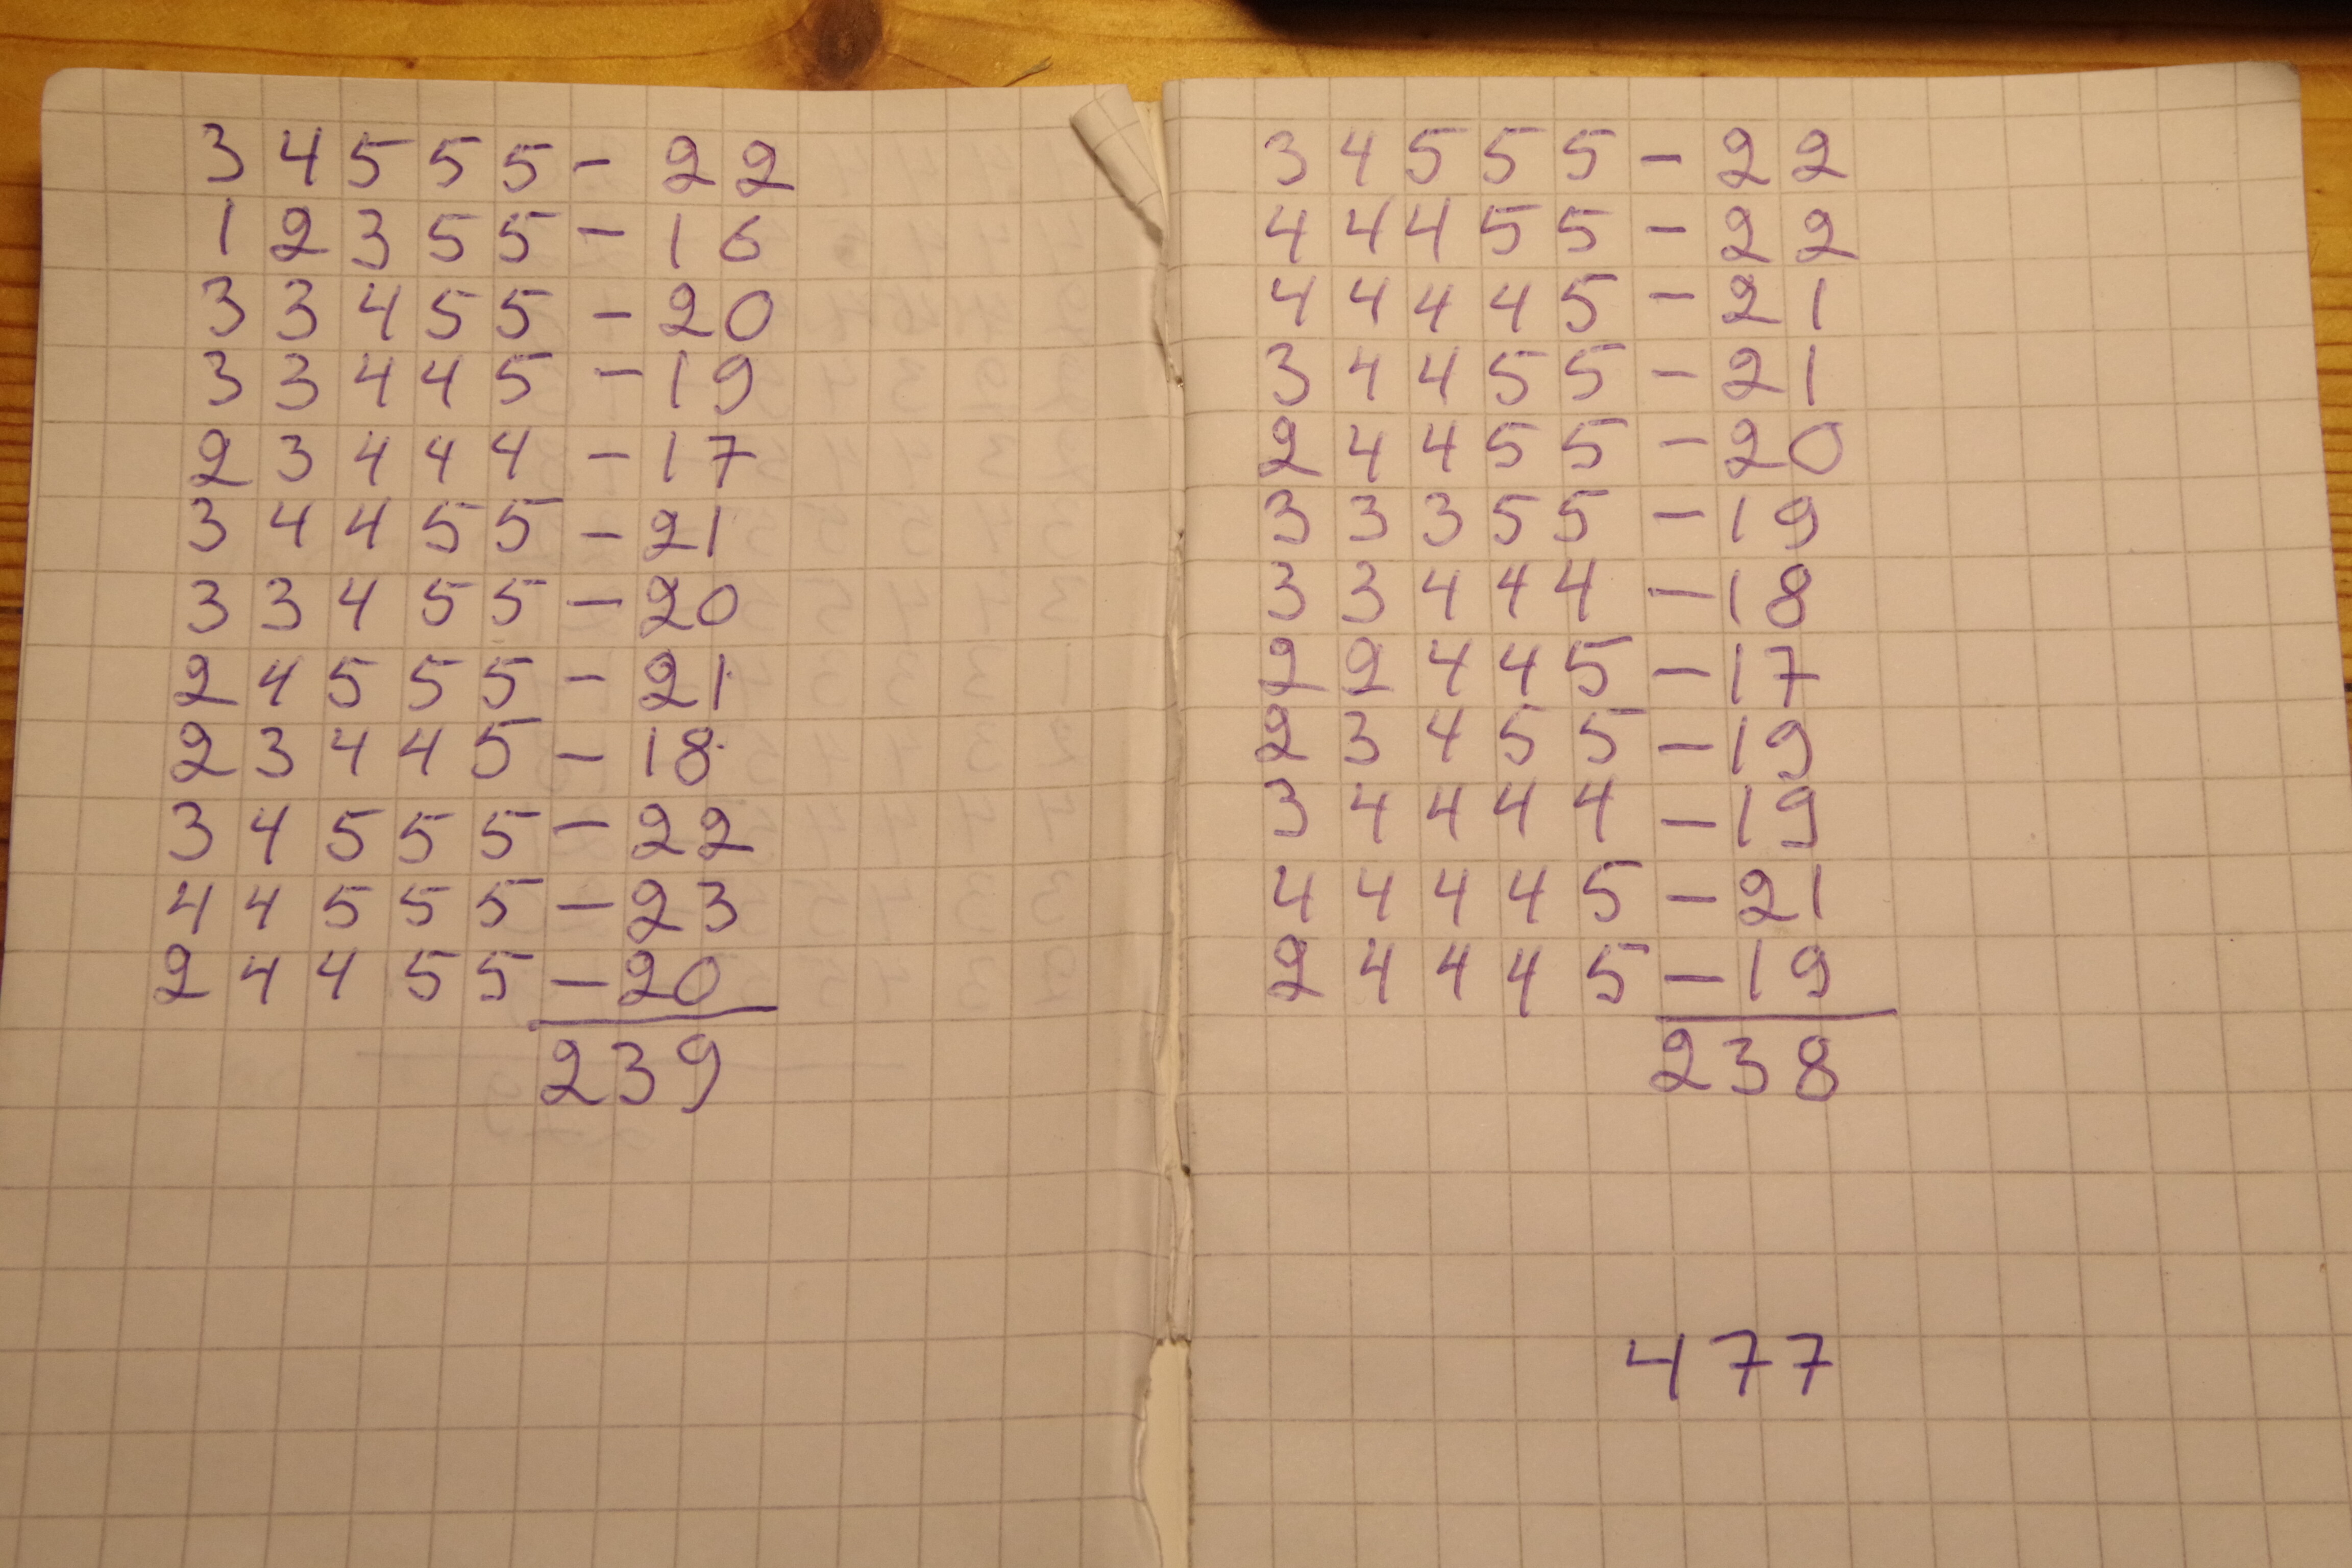 3 4 5 5 5 - 22
1 2 3 5 5 - 16
3 3 4 5 5 - 20
3 3 4 4 5 - 19
2 3 4 4 4 - 17
3 4 4 5 5 - 21
3 3 4 5 5 - 20
2 4 5 5 5 - 21
2 3 4 4 5 - 18
3 4 5 5 5 - 22
4 4 5 5 5 - 23
2 4 4 5 5 - 20
239
3 4 5 5 5 - 22
4 4 4 5 5 - 22
4 4 4 4 5 - 21
3 4 4 5 5 - 21
2 4 4 5 5 - 20
3 3 3 5 5 - 19
3 3 4 4 4 - 18
2 2 4 4 5 - 17
2 3 4 5 5 - 19
3 4 4 4 4 - 19
4 4 4 4 5 - 21
2 4 4 4 5 - 19
238
477